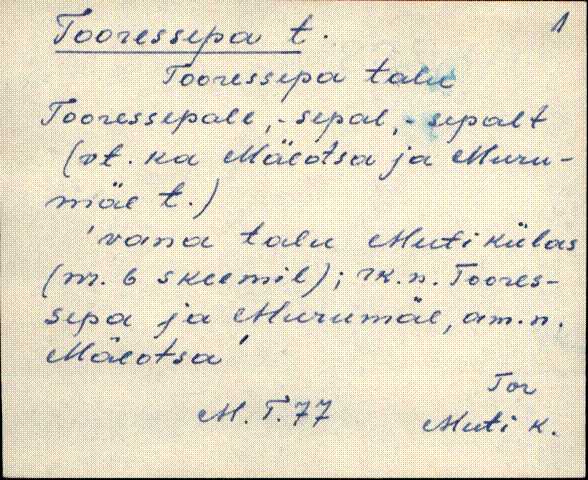 1
Tooressepa t.
Tooressepa talu
Tooressepale, -sepal, -sepalt
(vt. ka Mäeotsa ja Muru-
mäe t.)
'vana talu Muti külas
(nr. 6 skeemil); rk.n. Toores-
sepa ja Murumäe, am.n.
Mäeotsa'
Tor
M. T. 77
Muti k.